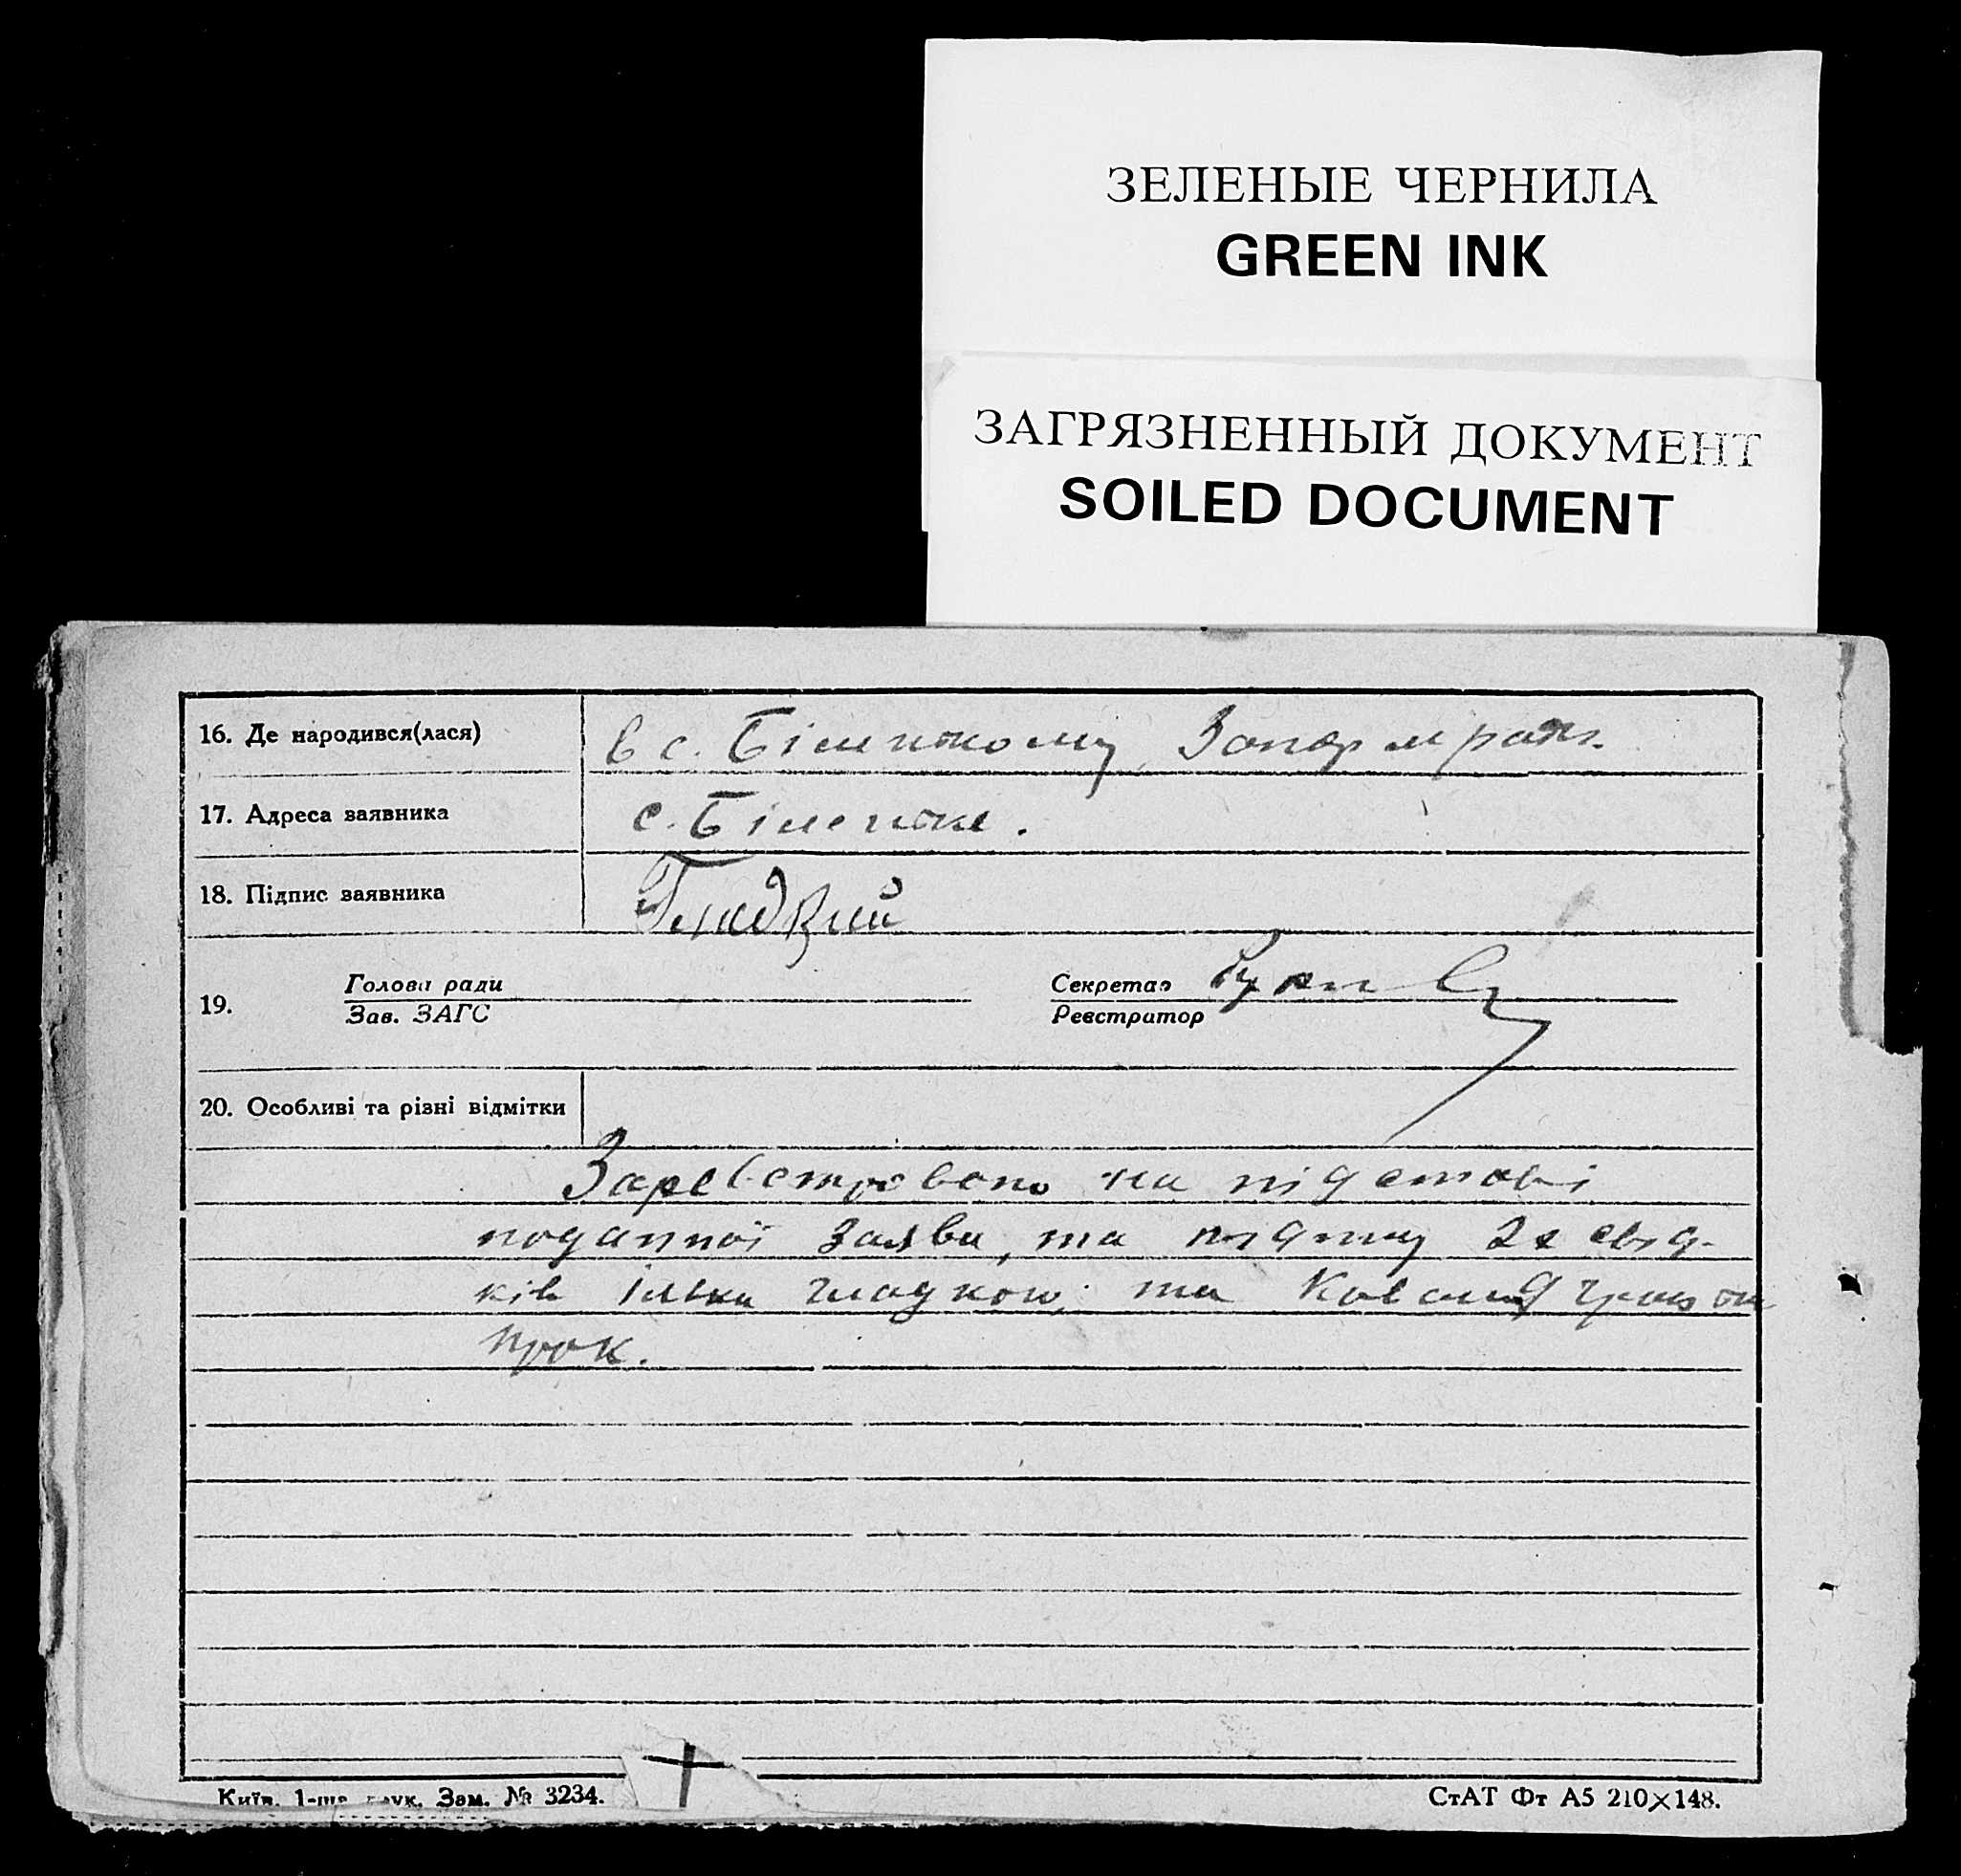 ЗЕЛЕНЫЕ ЧЕРНИЛА
GREEN INK
ЗАГРЯЗНЕННЫЙ ДОКУМЕНТ
SOILED DOCUMENT
16. Де народився(лася) в с. Біленькому,
17. Адреса заявника с. Біленьке.
18. Підпис заявника Гладкий
19. Голова ради Секретар
Зав. ЗАГС Реєстратор
20. Особливі та різні відмітки
Зареєстровано на підставі
поданної заяви, та 2х свід-
ків та
Київ. 1-ша друк. Зам. № 3234. СтАТ Фт А5 210×148.